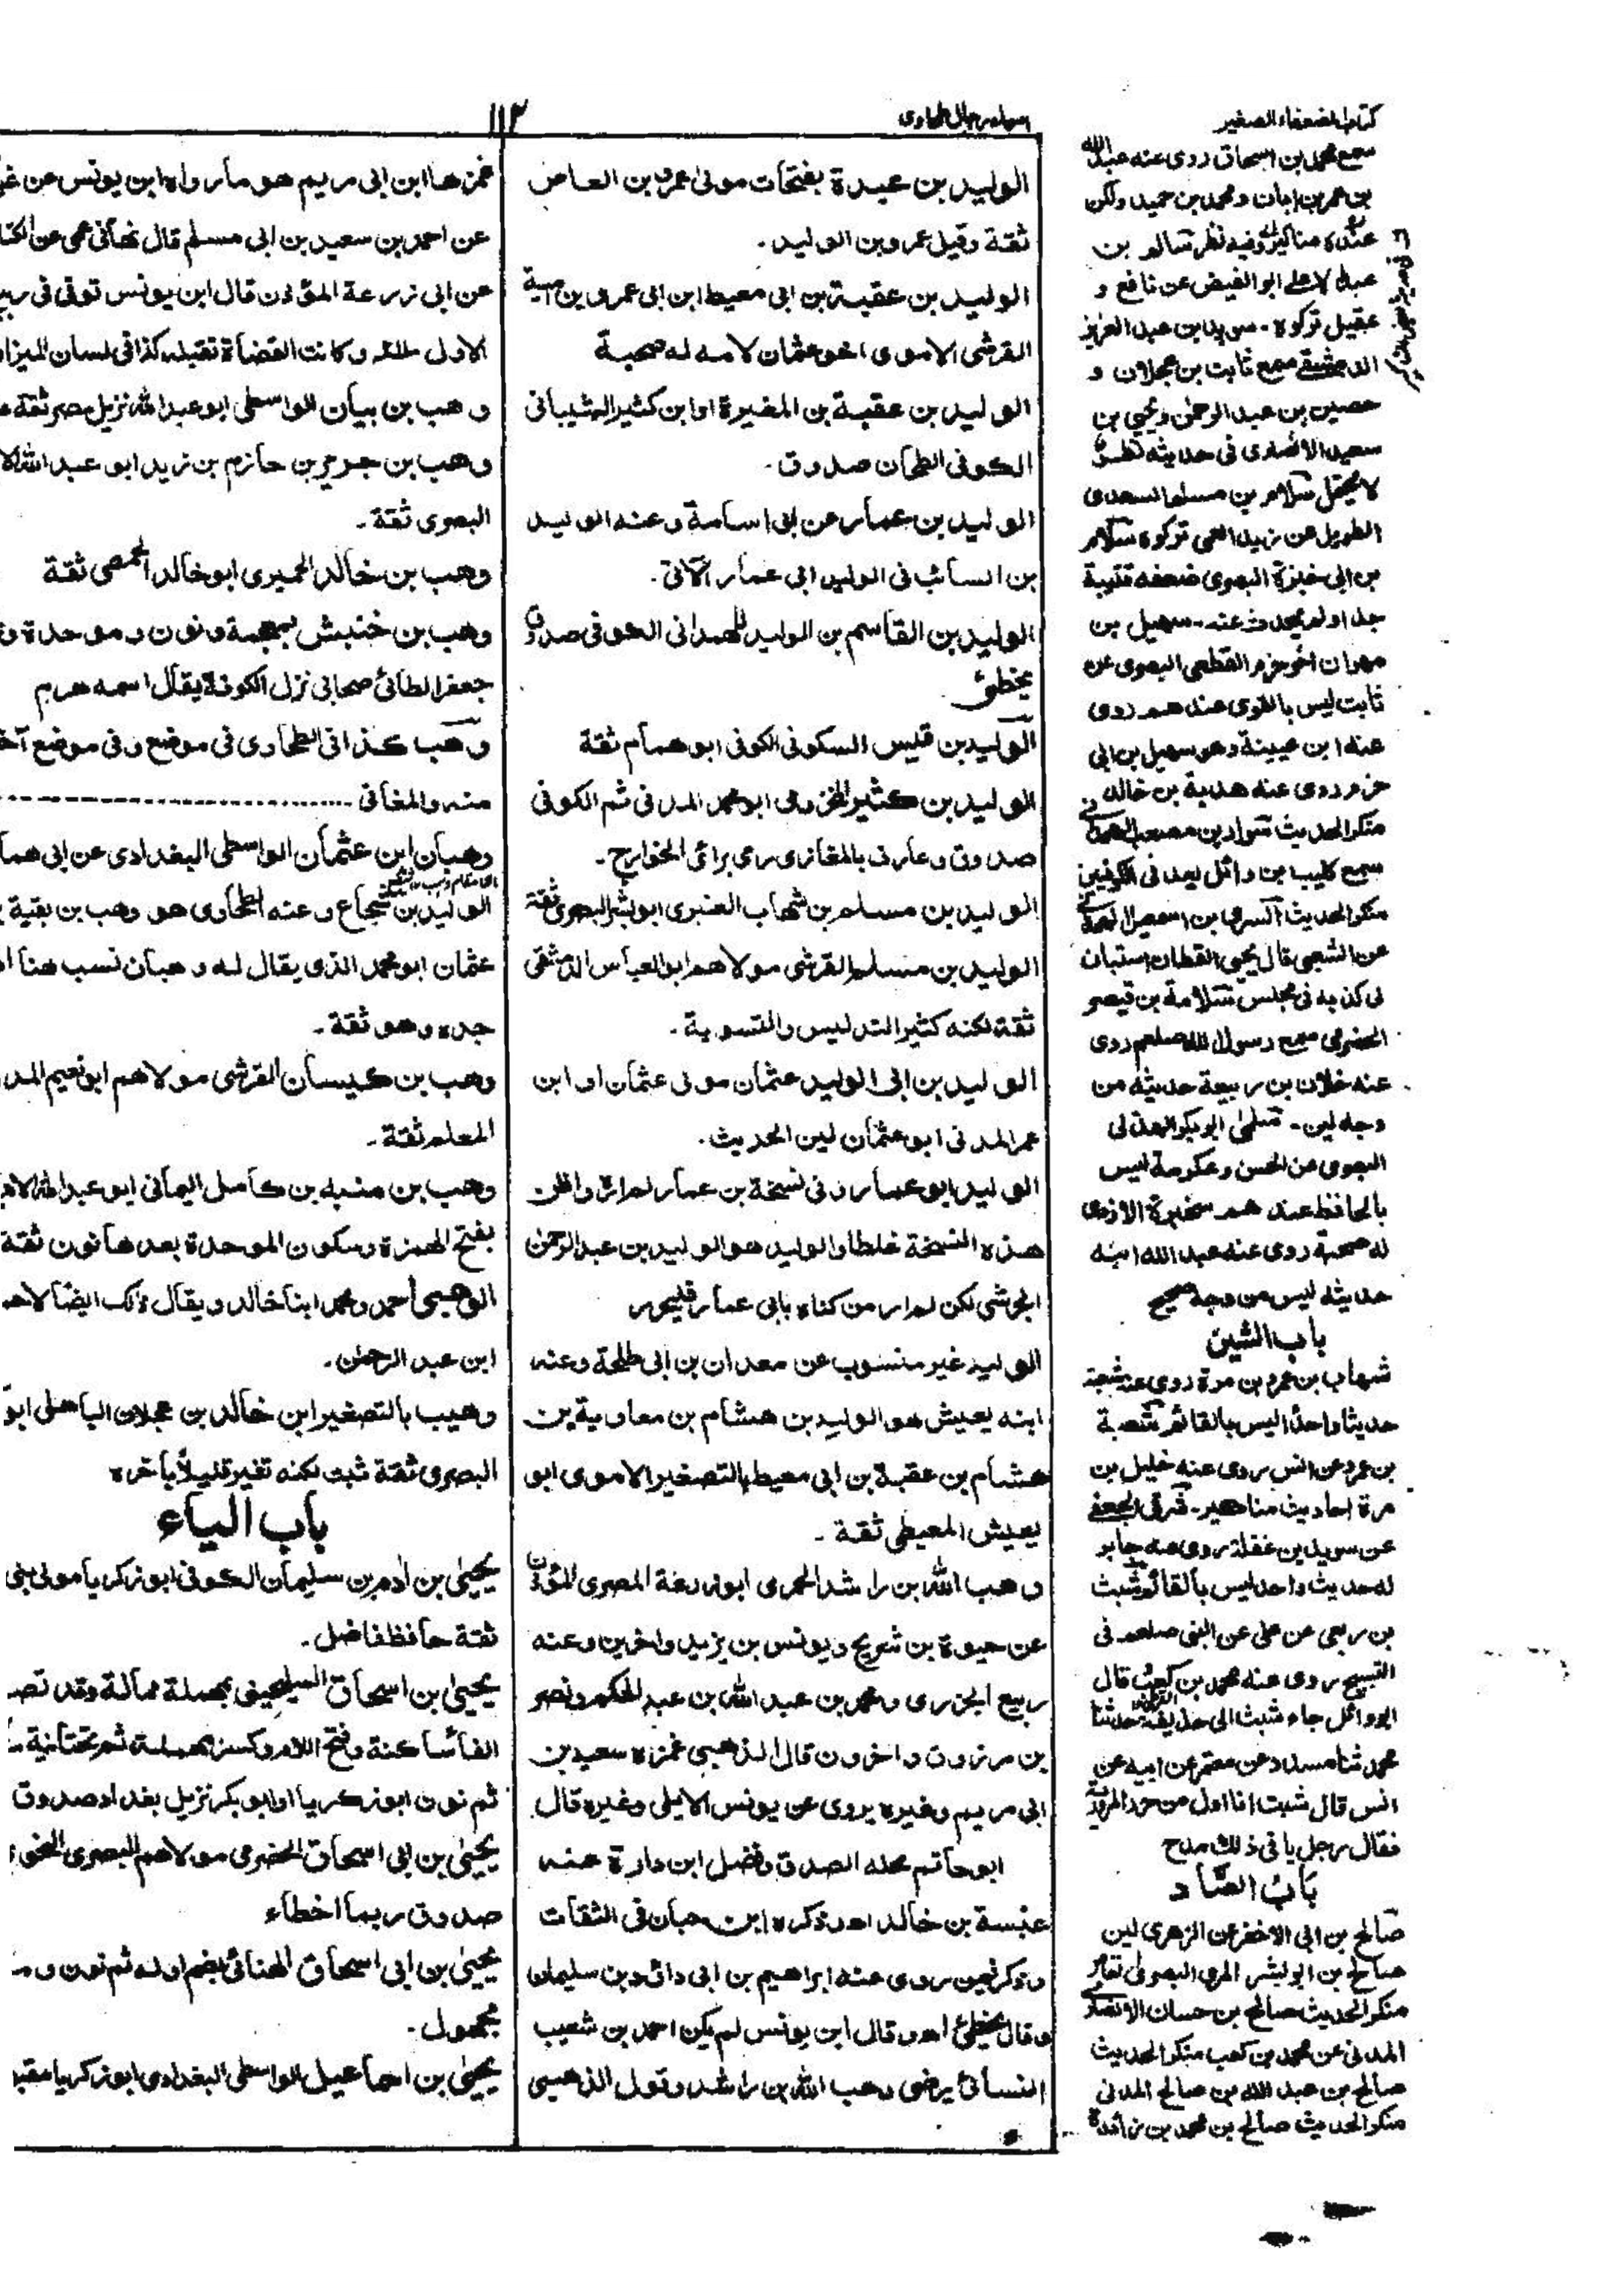 ١١٢
اسماء رجال الطحاوى
كتاب الضعفاء الصغير
الوليد بن عبدة بفتحات مولى عمرو بن العاص
ثقة وقيل عمرو بن الوليد.
الوليد بن عقبة بن ابى معيط ابن ابى عمرو بن امية
القرشى الاموى اخو عثمان لامه له صحبة
الوليد بن عقبة بن المغيرة او ابن كثير الشيبانى
الكوفى الطحان صدوق.
الوليد بن عمار عن ابى اسامة وعنه الوليد
بن السائب فى الوليد ابى عمار الآتى.
الوليد بن القاسم بن الوليد الهمدانى الكوفى صدوق
يخطئ
الوليد بن قيس السكونى الكوفى ابو همام ثقة
الوليد بن كثير المخزومى ابو محمد المدنى ثم الكوفى
صدوق وعارف بالمغازى رمى برائ الخوارج.
الوليد بن مسلم بن شهاب العنبرى ابو بشر البصرى ثقة
الوليد بن مسلم القرشى مولاهم ابو العباس الدمشقى
ثقة لكنه كثير التدليس والتسوية.
الوليد بن ابى الوليد عثمان مولى عثمان او ابن
عمر المدنى ابو عثمان لين الحديث.
الوليد ابو عمار وفى نسخة بن عمار لم اره واظن
هذه النسخة غلطا والوليد هو الوليد بن عبد الرحمن
الجرشى لكن لم ار من كناه بابى عمار فليحرر
الوليد غير منسوب عن معدان بن ابى طلحة وعنه
ابنه يعيش هو الوليد بن هشام بن معاوية بن
هشام بن عقبة بن ابى معيط بالتصغير الاموى ابو
يعيش المعيطى ثقة.
وهب الله بن راشد الحجرى ابو زرعة المصرى المؤذن
عن حيوة بن شريح ويونس بن يزيد واخرين وعنه
ربيع الجزرى ومحمد بن عبد الله بن عبد الحكم ونصر
بن مرزوق واخرون قال الذهبى غمزه سعيد بن
ابى مريم وغيره يروى عن يونس الايلى وغيره قال
ابو حاتم محله الصدق وفضل ابن وارة عنه
عنبسة بن خالد اهـ وذكره ابن حبان فى الثقات
وذكر فيمن روى عنه ابراهيم بن ابى داؤد بن سليمان
وقال يخطئ اهـ وقال ابن يونس لم يكن احمد بن شعيب
النسائى يرضى وهب الله بن راشد وقول الذهبى
غمزها ابن ابى مريم هو ما رواه ابن يونس عن
عن احمد بن سعيد بن ابى مسلم قال نهانى عمى عن
عن ابى زرعة المؤذن قال ابن يونس توفى فى
الاول وكانت القضاة تقبله كذا فى لسان الميزان
وهب بن بيان الواسطى ابو عبد الله نزيل مصر ثقة
وهب بن جرير بن حازم بن زيد ابو عبد الله
البصرى ثقة.
وهب بن خالد الحميرى ابو خالد الحمصى ثقة
وهب بن خنبش بمعجمة ونون وموحدة
جعفر الطائى صحابى نزل الكوفة يقال اسمه هرم
وهب كذا فى الطحاوى فى موضع وفى موضع
منه والمغانى
وهبان ابن عثمان الواسطى البغدادى عن ابى
الوليد بن شجاع وعنه الطحاوى هو وهب بن بقية
عثمان ابو محمد الذى يقال له وهبان نسب هنا
جده وهو ثقة.
وهب بن كيسان القرشى مولاهم ابو نعيم
المعلم ثقة.
وهب بن منبه بن كامل اليمانى ابو عبد الله
بفتح الهمزة وسكون الموحدة بعدها نون ثقة
الوهبى احمد ومحمد ابنا خالد ويقال ذلك ايضا
ابن عبد الرحمن.
وهيب بالتصغير ابن خالد بن عجلان الباهلى ابو
البصرى ثقة ثبت لكنه تغير قليلا بآخره
باب الياء
يحيى بن آدم بن سليمان الكوفى ابو زكريا مولى بنى
ثقة حافظ فاضل.
يحيى بن اسحاق السيلحينى بمهملة ممالة وقد
الفا ساكنة وفتح اللام وكسر مهملة ثم تحتانية
ثم نون ابو زكريا او ابو بكر نزيل بغداد صدوق
يحيى بن ابى اسحاق الحضرمى مولاهم البصرى النحوى
صدوق ربما اخطاء
يحيى بن ابى اسحاق الهنائى بضم اوله ثم نون
مجهول.
يحيى بن اسماعيل الواسطى البغدادى ابو زكريا
سمع محمد بن اسحاق روى عنه عبد الله
بن عمر بن ابان ومحمد بن حميد ولكن
عنده مناكير وفيه نظر سالم بن
عبد الاعلى ابو الفيض عن نافع و
عقيل تركوه. سويد بن عبد العزيز
الدمشقى سمع ثابت بن عجلان و
حصين بن عبد الرحمن ويحيى بن
سعيد الانصارى فى حديثه نظر
لا يحتمل سلام بن مسلم السعدى
الطويل عن زيد العمى تركوه سلام
بن ابى خبزة البصرى ضعفه قتيبة
جدا ولم يحدث عنه. سهيل بن
مهران اخو حزم القطعى البصرى عن
ثابت ليس بالقوى عندهم روى
عنه ابن عيينة وهو سهيل بن ابى
حزم روى عنه هدبة بن خالد
منكر الحديث سوار بن مصعب الهمدانى
سمع كليب بن وائل يعد فى الكوفيين
منكر الحديث السرى بن اسمعيل
عن الشعبى قال يحيى القطان استبان
لى كذبه فى مجلس سلامة بن قيصر
الحضرمى سمع رسول الله صلعم روى
عنه خلان بن ربيعة حديثه من
وجه لين. سلمى ابو بكر الهذلى
البصرى عن الحسن وعكرمة ليس
بالحافظ عندهم سخبرة الازدى
له صحبة روى عنه عبد الله ابنه
حديثه ليس من وجه صحيح
باب الشين
شهاب بن عمرو بن مرة روى عنه شعبة
حديثا واحدا ليس بالقائم شعبة
بن عمرو عن انس روى عنه خليل بن
مرة احاديث مناكير. شرقى الجعفى
عن سويد بن غفلة روى عنه جابر
له حديث واحد ليس بالقائم شبث
بن ربعى عن على عن النبى صلعم فى
التسبيح روى عنه محمد بن كعب قال
ابو وائل جاء شبث الى حذيفة حدثنا
محمد ثنا مسدد عن معتمر عن ابيه عن
انس قال شبث انا اول من حزر الحرورية
فقال رجل ما فى ذلك مدح
باب الصاد
صالح بن ابى الاخضر عن الزهرى لين
صالح بن ابو بشر المرى البصرى
منكر الحديث صالح بن حسان الانصارى
المدنى عن محمد بن كعب منكر الحديث
صالح بن عبد الله بن صالح المدنى
منكر الحديث صالح بن محمد بن زائدة